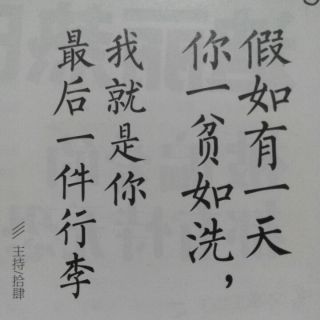 假如有一天
你一贫如洗，
我就是你
最后一件行李
主持/拾肆